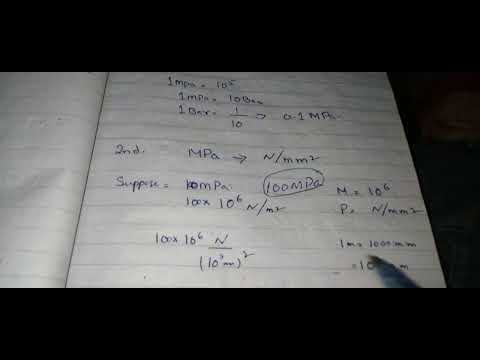 1mpa = 10⁵
1mPa = 10Bar
1Bar = 1/10 → 0.1 MPa
2nd. MPa → N/mm²
Suppose = 100mPa. 100MPa M = 10⁶
100x 10⁶ N/m² P = N/mm²
100x 10⁶ N/(10³m)² 1m = 1000mm
= 10